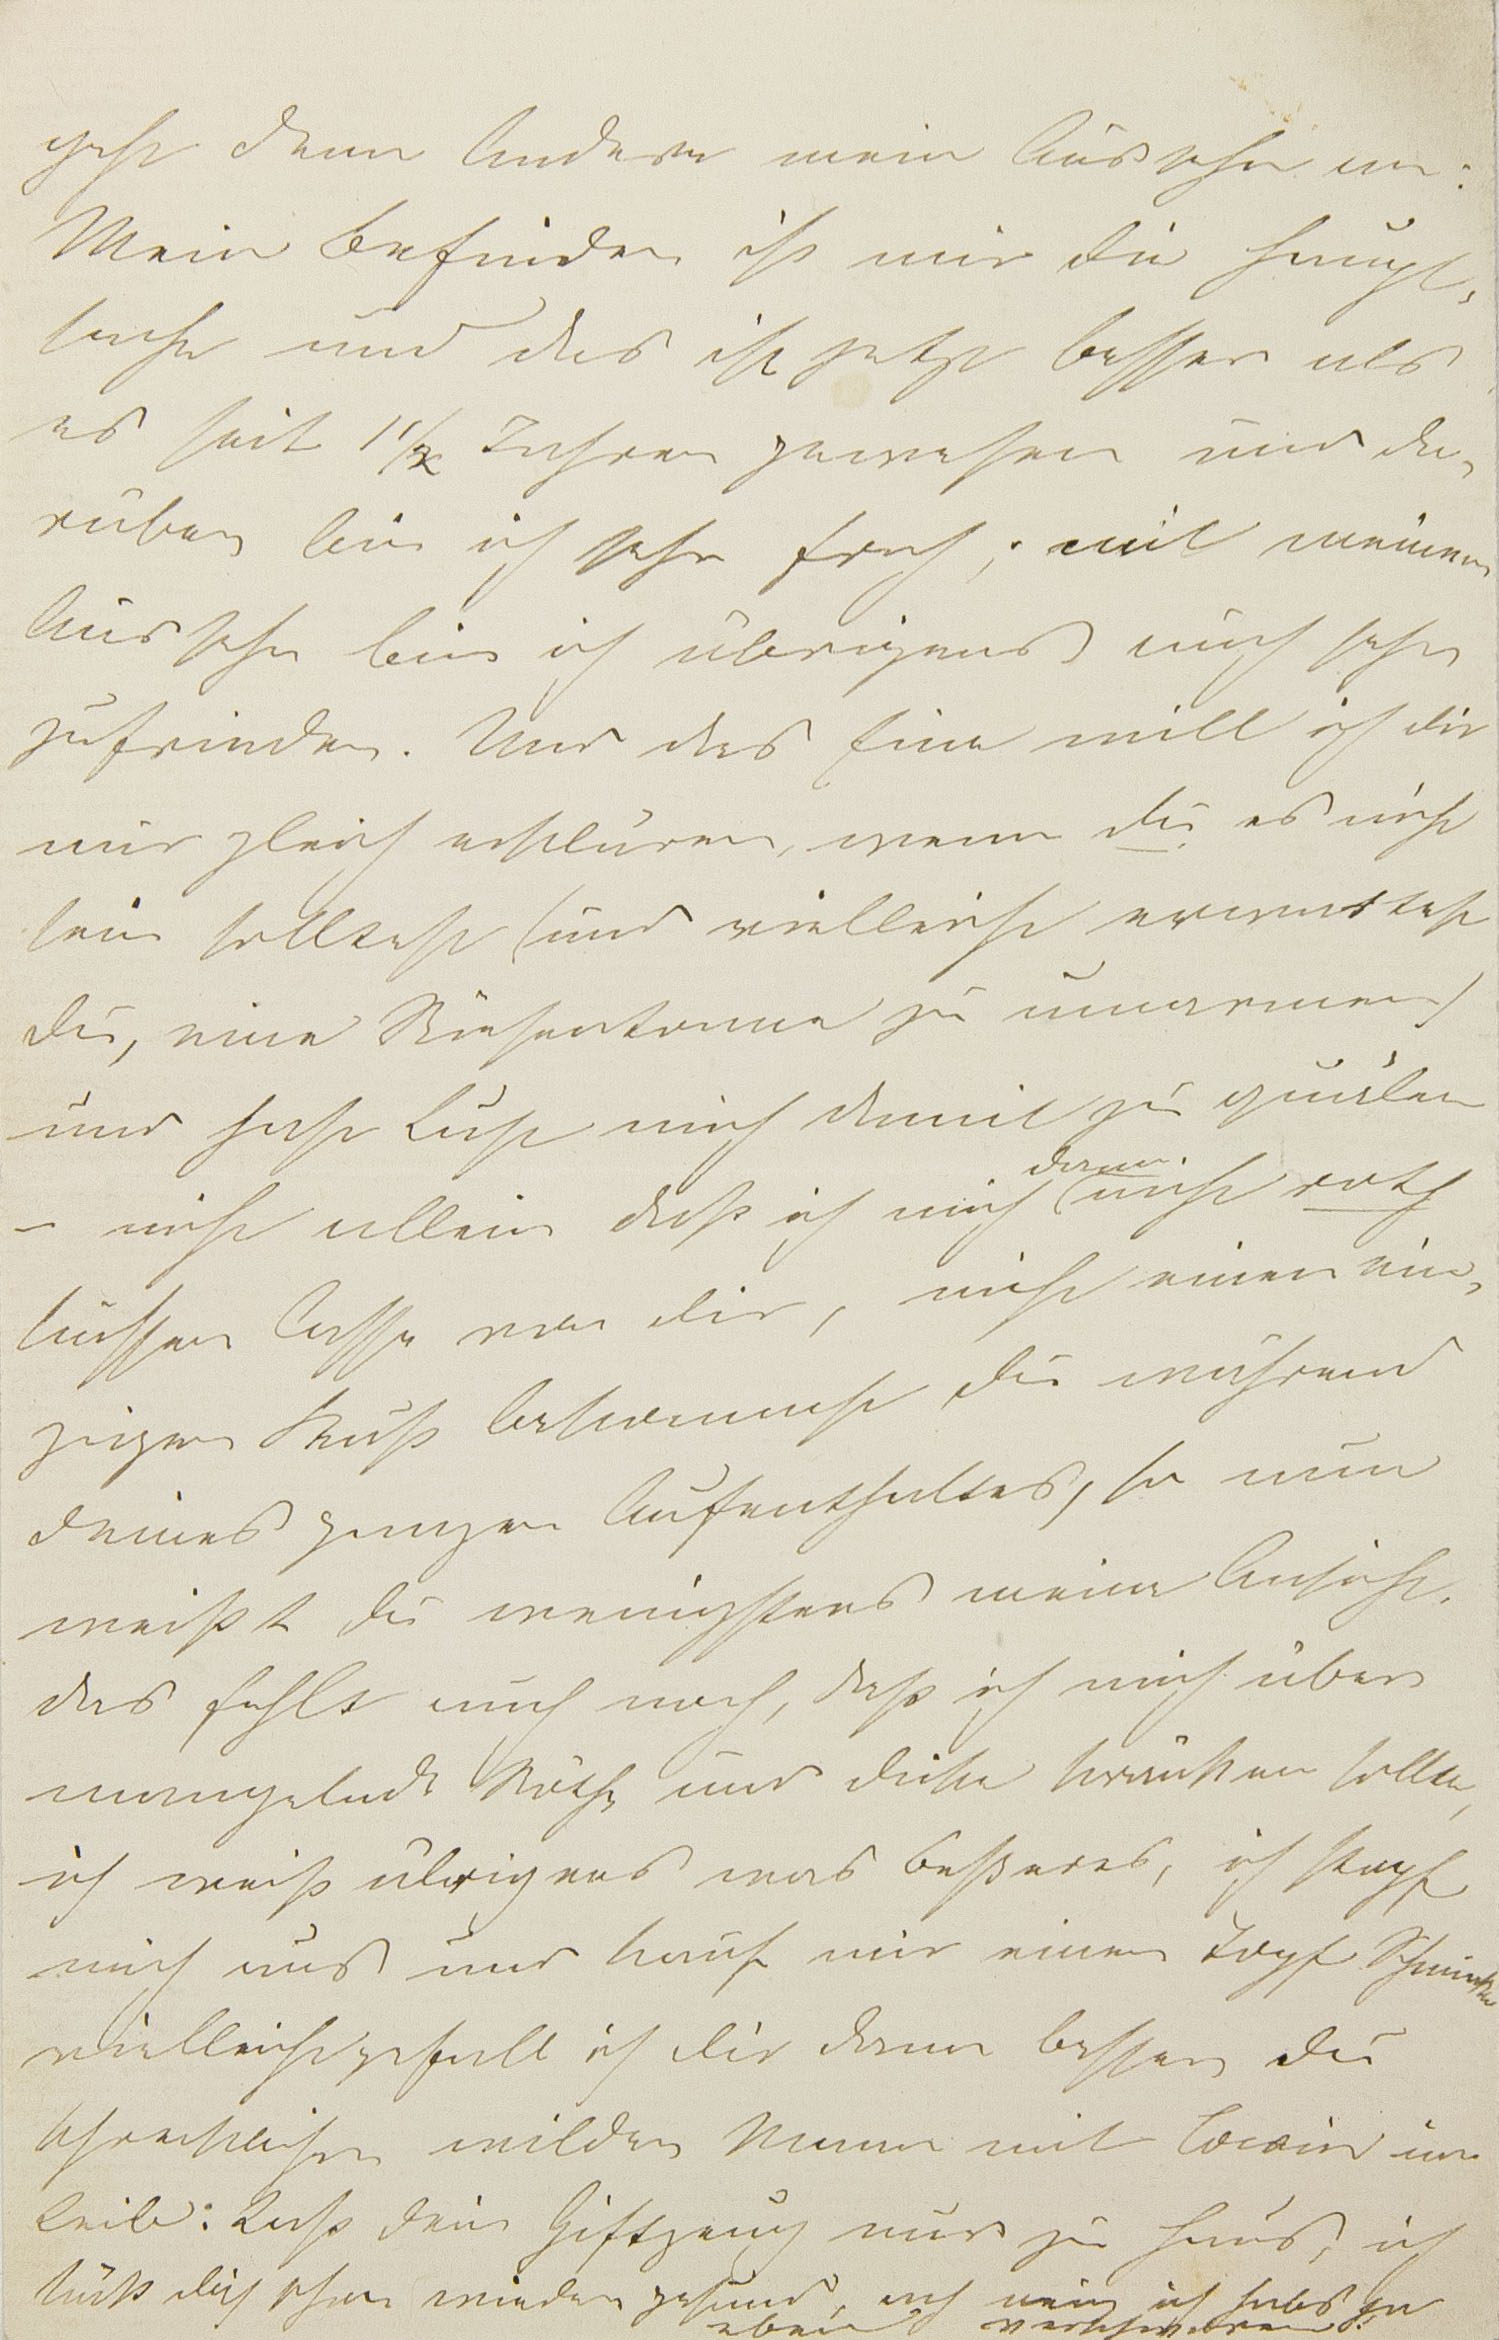 geht denn Andere mein Aussehn an:
Mein Befinden ist mir die Haupt-
sache und das ist jetzt besser als
es seit 1 1/2 Jahren gewesen und da-
rüber bin ich sehr froh; mit meinem
Aussehn bin ich übrigens auch sehr
zufrieden. Und das Eine will ich dir
nur gleich erklären, wenn du es nicht
sein solltest (und vielleicht erwartest
du, eine Riesentonne zu umarmen)
und hast Lust mich damit zu quälen
– nicht allein daß ich mich dann nicht roth
küssen lasse von dir, nicht einen ein-
zigen Kuß bekommst du während
deines ganzen Aufenthaltes, so nun
weißt du wenigstens meine Ansicht.
das fehlt auch noch, daß ich mich über
mangelnde Röthe und dicke kränken sollte,
ich weiß übrigens was beßeres, ich stopf
mich aus und kauf mir einen Topf Schminke
vielleicht gefall ich dir dann besser du
schrecklicher wilder Mann mit Cocain im
Leibe: Laß dein Giftzeug nur zu Haus, ich
küß dich schon wieder gesund, ach nein ich habs ja
eben verschworen!